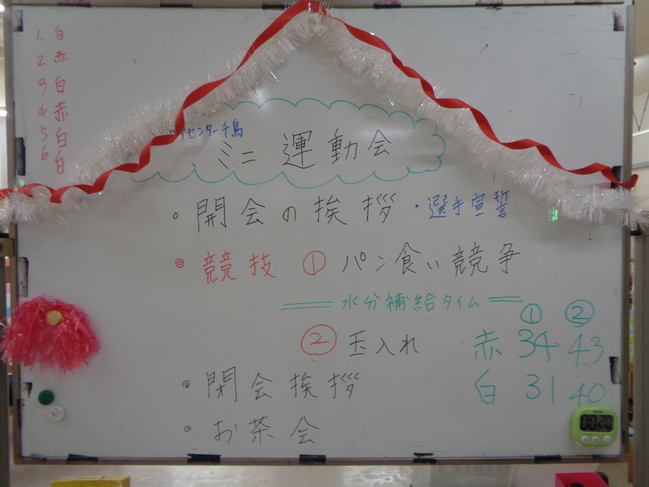 1. 白
2 赤
3 白
4 赤
5 白
6 白
センター千鳥
ミニ 運動会
・開会の挨拶 ・選手宣誓
◎ 競技 ① パン食い競争
水分補給タイム
② 玉入れ
① ②
赤 34 43
白 31 40
・閉会挨拶
・お茶会
00 20